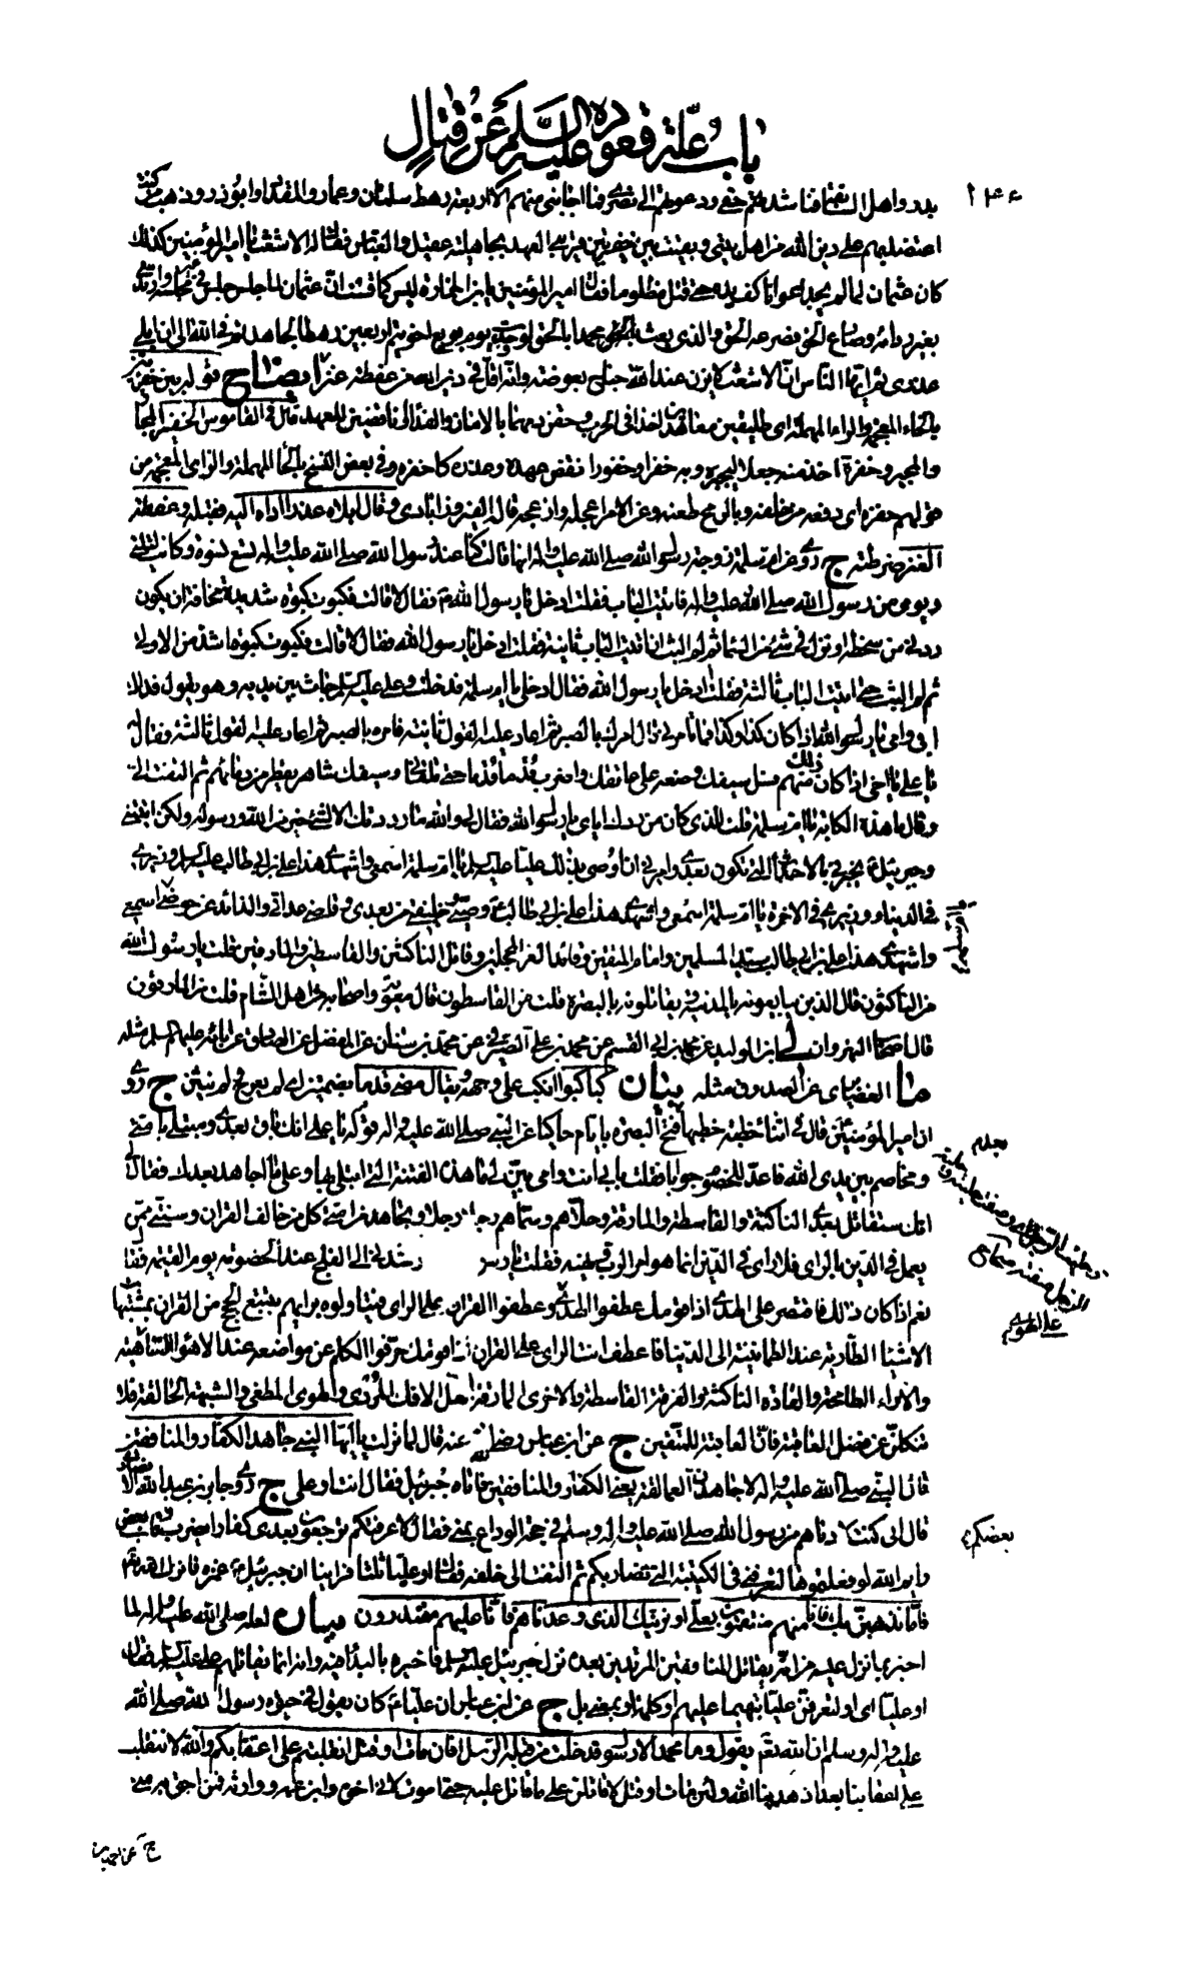 باب علة قعوده عليه السلم عن قتال
١٤٦
بدر واهل السابقة فناشدتهم حقي ودعوتهم الى نصرتي فما اجابني منهم الا اربعة رهط سلمان وعمار والمقداد وابوذر وذهب من كنت
اعتضد بهم على دين الله من اهل بيتي وبقيت بين خفيرتين قريبي العهد بجاهلية عقيل والعباس فقال له الاشعث يا امير المؤمنين كذلك
كان عثمان لما لم يجد اعوانا كف يده حتى قتل مظلوما فقال امير المؤمنين يا بن الخمارة ليس كما قست ان عثمان لما جلس جلس في غير مجلسه وارتدى
بغير ردائه وصارع الحق فصرعه الحق والذي بعث محمدا بالحق لو وجدت يوم بويع اخو تيم اربعين رهطا لجاهدتهم في الله الى ان ابلي
عذري ثم ايها الناس ان الاشعث لا يزن عند الله جناح بعوضة وانه اقل في دين الله من عفطة عنز ايضاح قوله بين خفيرتين
بالخاء المعجمة والراء المهملة اي طليقين معاهدين اخذا في الحرب وحقن دمهما بالامان والفداء او ناقضين للعهد قال في القاموس الخفير المجار
والمجير وخفره اخذ منه جعلا ليجيره وبه خفرا وخفورا نقض عهده وغدره كاخفره وفي بعض النسخ بالحاء المهملة والزاي المعجمة من
قولهم حفزه اي دفعه من خلفه وبالرمح طعنه وعن الامر اعجله وازعجه قال الفيروزآبادي وقال ابلاه عذرا اداه اليه فقبله وعفطة
العنز ضرطته ج روي عن ام سلمة زوجة رسول الله صلى الله عليه واله انها قالت كنا عند رسول الله صلى الله عليه واله تسع نسوة وكانت ليلتي
ويومي من رسول الله صلى الله عليه واله فاتيت الباب فقلت ادخل يا رسول الله فقال لا قالت فكبوت كبوة شديدة مخافة ان يكون
ردني من سخطة او نزل في شيء من السماء ثم لم البث ان اتيت الباب ثانية فقلت ادخل يا رسول الله فقال لا قالت فكبوت كبوة اشد من الاولى
ثم لم البث حتى اتيت الباب ثالثة فقلت ادخل يا رسول الله فقال ادخلي يا ام سلمة فدخلت وعلي عليه السلم جاث بين يديه وهو يقول فداك
ابي وامي يا رسول الله اذا كان كذا وكذا فما تامرني قال امرك بالصبر ثم اعاد عليه القول ثانية فامره بالصبر ثم اعاد عليه القول ثالثة فقال
يا علي يا اخي اذا كان ذلك منهم فسل سيفك وضعه على عاتقك واضرب قدما قدما حتى تلقاني وسيفك شاهر يقطر من دمائهم ثم التفت الي
وقال ما هذه الكابة يا ام سلمة قلت للذي كان من ردك اياي يا رسول الله فقال لي والله ما رددتك الا لشيء خير من الله ورسوله ولكن اتيتني
وجبرئيل يخبرني بالاحداث التي تكون بعدي وامرني ان اوصي بذلك عليا يا ام سلمة اسمعي واشهدي هذا علي بن ابي طالب وزيري
في الدنيا ووزيري في الاخرة يا ام سلمة اسمعي واشهدي هذا علي بن ابي طالب وصيي وخليفتي من بعدي وقاضي عداتي والذائد عن حوضي اسمعي
يا ام سلمة
واشهدي هذا علي بن ابي طالب سيد المسلمين وامام المتقين وقائد الغر المحجلين وقاتل الناكثين والقاسطين والمارقين قلت يا رسول الله
من الناكثون قال الذين يبايعونه بالمدينة ويقاتلونه بالبصرة قلت من القاسطون قال معوية واصحابه من اهل الشام قلت من المارقون
قال اصحاب النهروان لي ابن الوليد عن محمد بن ابي القسم عن محمد بن علي الصيرفي عن محمد بن سنان عن المفضل عن الصادق عن ابائه عليهم السلم مثله
ما الغضايري عن الصدوق مثله بيان كبا كبوا انكب على وجهه ويقال مضى قدما بضمتين اي لم يعرج ولم ينثن ج روي
ان امير المؤمنين قال في اثناء خطبة خطبها بعد فتح البصرة بايام حاكيا عن النبي صلى الله عليه واله قوله يا علي انك باق بعدي ومبتلى بامتي
ومخاصم بين يدي الله فاعد للخصومة جوابا فقلت بابي انت وامي بين لي ما هذه الفتنة التي ابتلي بها وعلى ما اجاهد بعدك فقال لي
انك ستقاتل بعدي الناكثة والقاسطة والمارقة وحلاهم وسماهم رجلا رجلا وتجاهد من امتي كل من خالف القران وسنتي ممن
يعمل في الدين بالراي فلا راي في الدين انما هو امر الرب ونهيه فقلت يا رسول الله ارشدني الى الفلج عند الخصومة يوم القيمة فقال
نعم اذا كان ذلك فاقتصر على الهدى اذا قومك عطفوا الهدى على الهوى وعطفوا القران على الراي فتاولوه برايهم بتتبع الحجج من القران بمشتبهات
الاشياء الطارية عند الطمانينة الى الدنيا فاعطف انت الراي على القران اذا قومك حرفوا الكلم عن مواضعه عند الاهواء الساهية
والامراء الطامحة والقادة الناكثة والفرقة القاسطة والاخرى المارقة اهل الافك المردي والهوى المطغي والشبهة الخالقة فلا
تتكلن عن فضل العاقبة فان العاقبة للمتقين ج عن ابن عباس رضي الله عنه قال لما نزلت يا ايها النبي جاهد الكفار والمنافقين
قال النبي صلى الله عليه واله لاجاهدن العمالقة يعني الكفار والمنافقين فاتاه جبرئيل فقال انت او علي ج روى جابر بن عبد الله الانصاري
قال اني كنت لادناهم من رسول الله صلى الله عليه واله وسلم في حجة الوداع بمنى فقال لاعرفنكم ترجعون بعدي كفارا يضرب بعضكم رقاب بعض
وايم الله لو فعلتموها لتعرفنني في الكتيبة التي تضاربكم ثم التفت الى خلفه فقال او عليا ثلثا فراينا ان جبرئيل غمزه فانزل الله تعالى
فاما نذهبن بك فانا منهم منتقمون بعلي او نرينك الذي وعدناهم فانا عليهم مقتدرون بيان لعله صلى الله عليه واله لما
اخبر بما نزل عليه من انه يقاتل المنافقين المرتدين بعده نزل جبرئيل عليه السلم فاخبره بالبداء فيه وانه انما يقاتلهم علي عليه السلم فقال
او عليا اي او لتعرفن عليا بتهيئه عليهم او كلمة او بمعنى بل ج عن ابن عباس ان عليا كان يقول في حيوة رسول الله صلى الله
عليه واله وسلم ان الله تعالى يقول وما محمد الا رسول قد خلت من قبله الرسل افان مات او قتل انقلبتم على اعقابكم والله لا ننقلب
على اعقابنا بعد اذ هدينا الله ولئن مات او قتل لاقاتلن على ما قاتل عليه حتى اموت لاني اخوه وابن عمه ووارثه فمن احق به مني
بعضكم